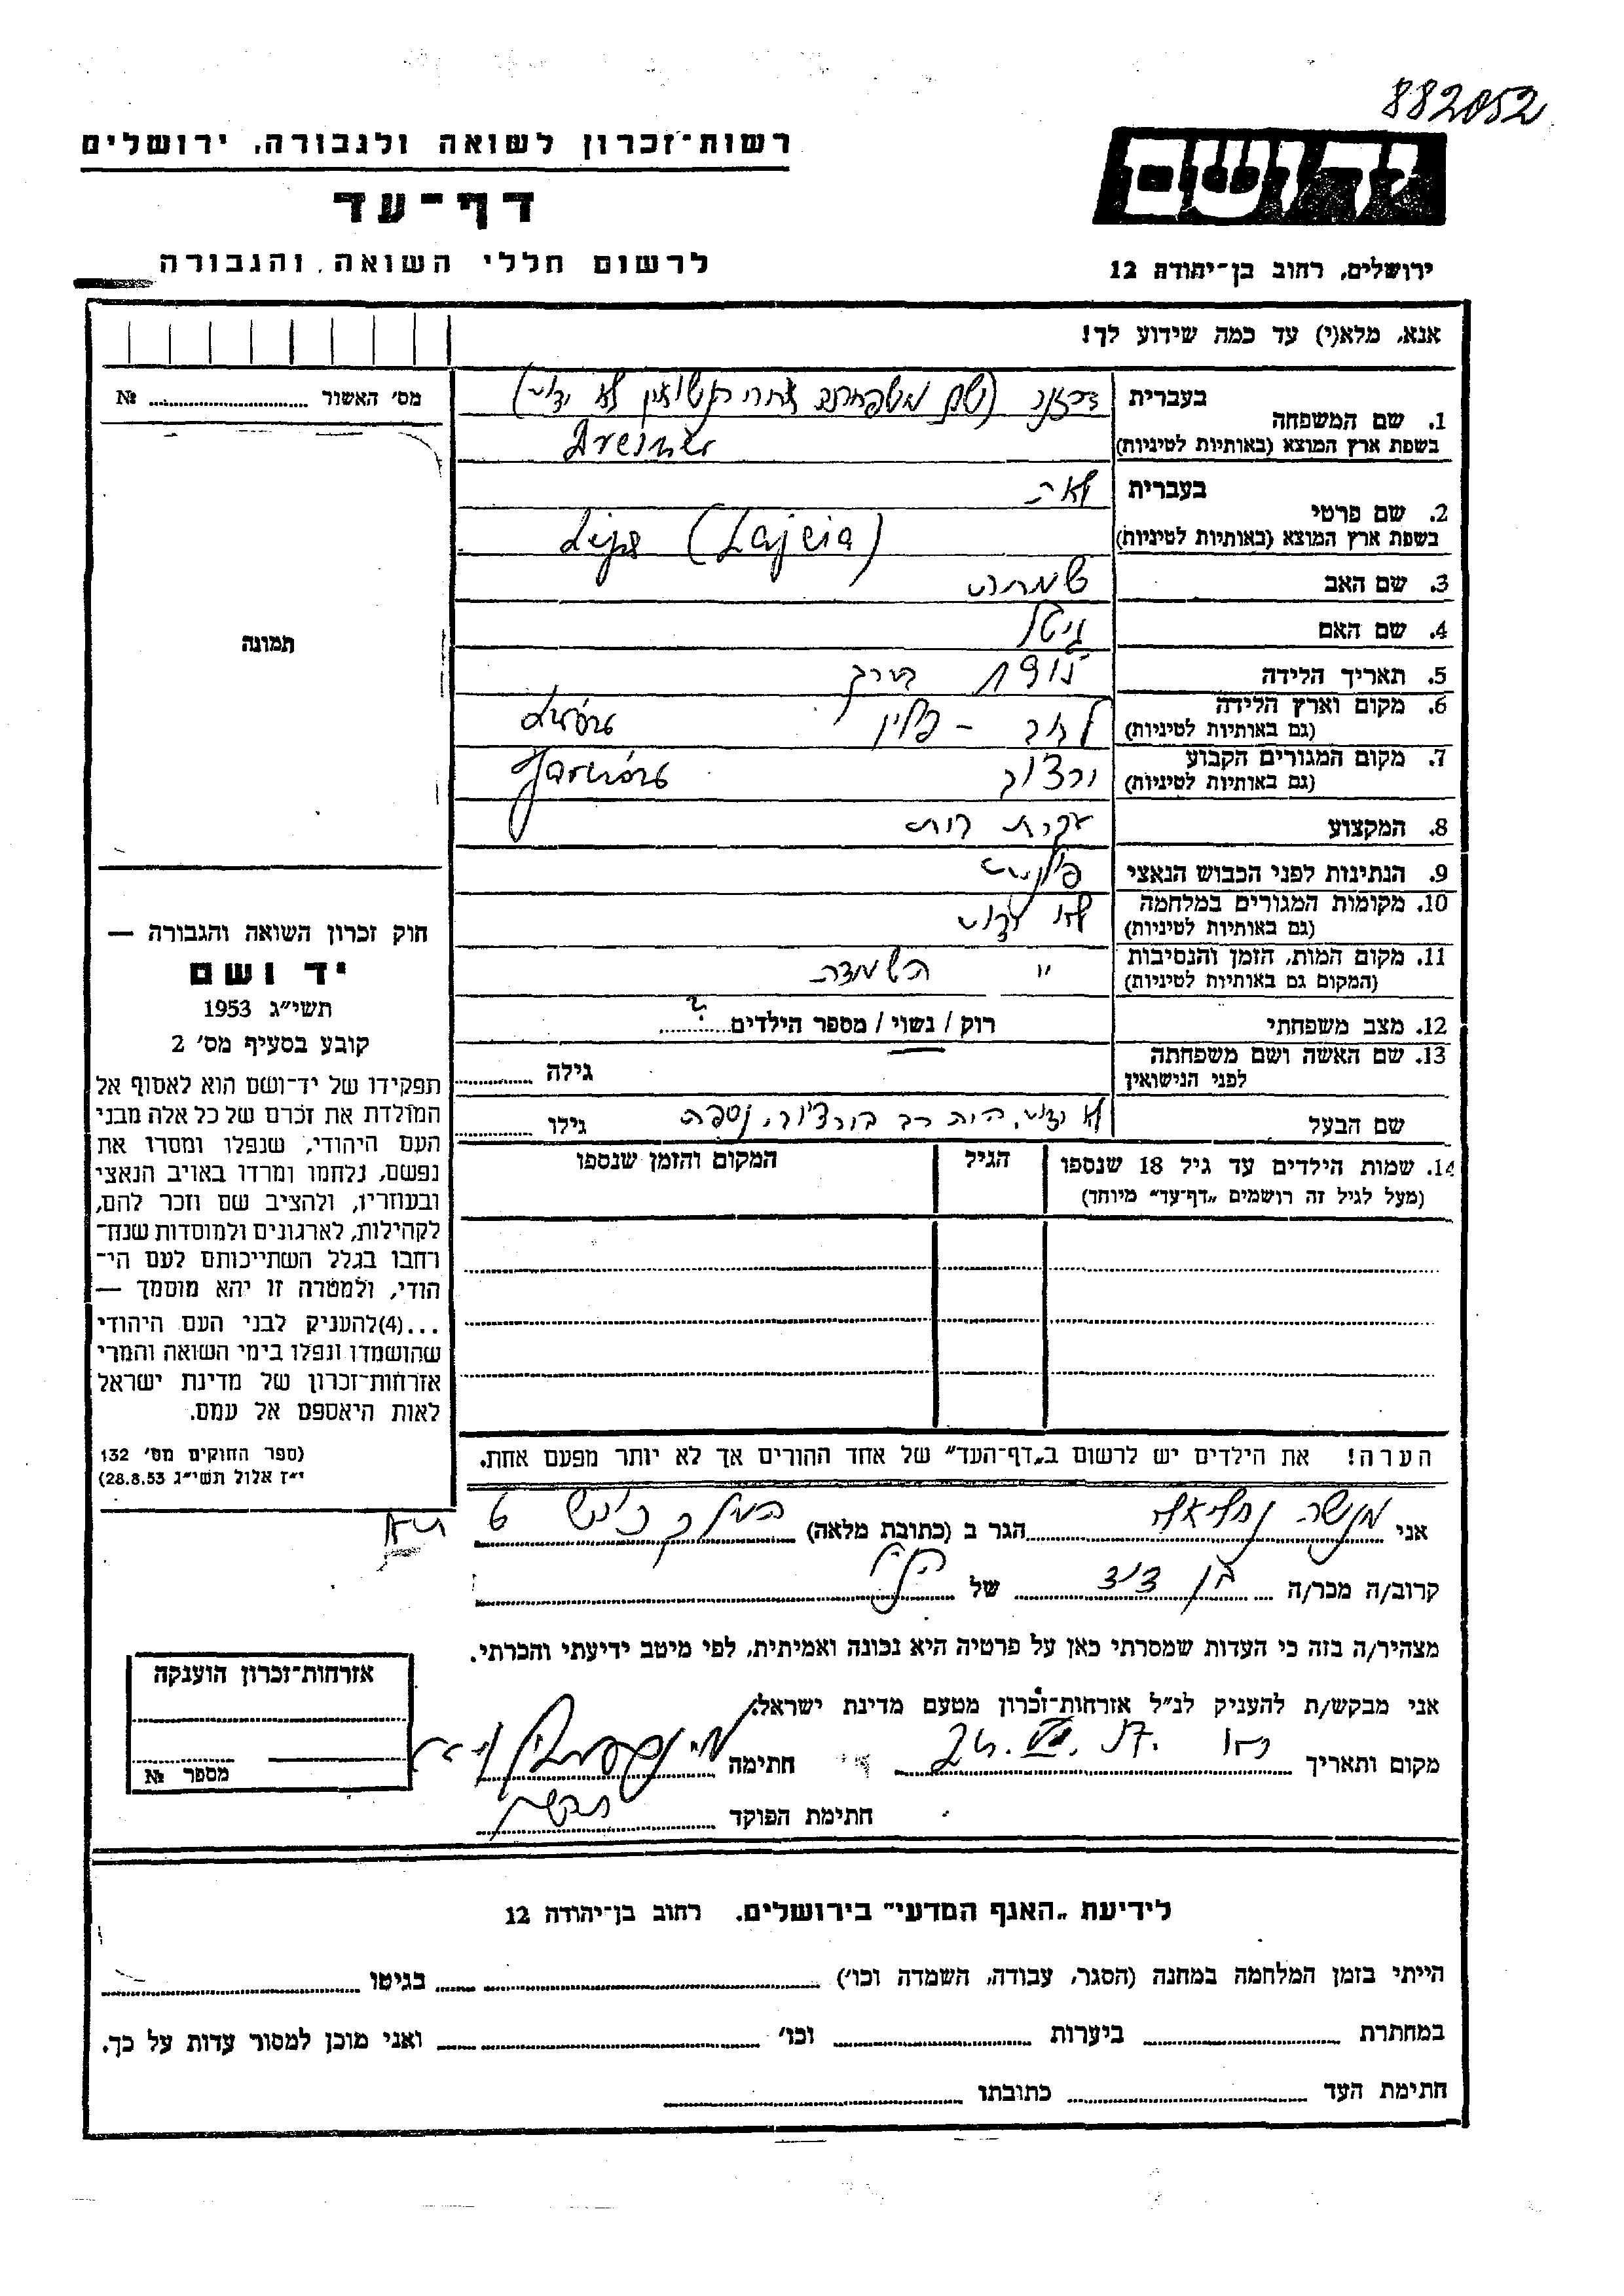 882052
רשות־זכרון לשואה ולגבורה, ירושלים
ידושם
דף־עד
לרשום חללי השואה והגבורה
ירושלים, רחוב בן־יהודה 12
אנא, מלא(י) עד כמה שידוע לך!
מס׳ האשור №
1. שם המשפחה
בעברית (שם משפחתה אחרי הנשואין לא ידוע)
בשפת ארץ המוצא (באותיות לטיניות) Dreiner
2. שם פרטי
בעברית לאה
בשפת ארץ המוצא (באותיות לטיניות) (Lajcia)
3. שם האב שמחה
4. שם האם גיטל
5. תאריך הלידה בערך
6. מקום וארץ הלידה לבוב - פולין Lwów
(גם באותיות לטיניות)
7. מקום המגורים הקבוע
(גם באותיות לטיניות)
8. המקצוע עקרת בית
9. הנתינות לפני הכבוש הנאצי פולנית
10. מקומות המגורים במלחמה לא ידוע
(גם באותיות לטיניות)
11. מקום המות, הזמן והנסיבות " השמדה
(המקום גם באותיות לטיניות)
12. מצב משפחתי רוק / נשוי / מספר הילדים ?
13. שם האשה ושם משפחתה
לפני הנישואין גילה
שם הבעל לא ידוע, היה רב נספה גילו
14. שמות הילדים עד גיל 18 שנספו הגיל המקום והזמן שנספו
(מעל לגיל זה רושמים „דף־עד״ מיוחד)
הערה! את הילדים יש לרשום ב„דף־העד״ של אחד ההורים אך לא יותר מפעם אחת.
תמונה
חוק זכרון השואה והגבורה —
יד ושם
תשי״ג 1953
קובע בסעיף מס׳ 2
תפקידו של יד־ושם הוא לאסוף אל
המולדת את זכרם של כל אלה מבני
העם היהודי, שנפלו ומסרו את
נפשם, נלחמו ומרדו באויב הנאצי
ובעוזריו, ולהציב שם וזכר להם,
לקהילות, לארגונים ולמוסדות שנח־
רחבו בגלל השתייכותם לעם הי־
הודי, ולמטרה זו יהא מוסמך —
...(4)להעניק לבני העם היהודי
שהושמדו ונפלו בימי השואה והמרי
אזרחות־זכרון של מדינת ישראל
לאות היאספם אל עמם.
(ספר החוקים מס׳ 132
י״ז אלול תשי״ג 28.8.53)
אני מנשה הגר ב (כתובת מלאה)
קרוב/ה מכר/ה בן דוד של הנ״ל
מצהיר/ה בזה כי העדות שמסרתי כאן על פרטיה היא נכונה ואמיתית, לפי מיטב ידיעתי והכרתי.
אני מבקש/ת להעניק לנ״ל אזרחות־זכרון מטעם מדינת ישראל.
מקום ותאריך חתימה
חתימת הפוקד
אזרחות־זכרון הוענקה
מספר №
לידיעת „האגף המדעי״ בירושלים. רחוב בן־יהודה 12
הייתי בזמן המלחמה במחנה (הסגר, עבודה, השמדה וכו׳) בגיטו
במחתרת ביערות וכו׳ ואני מוכן למסור עדות על כך.
חתימת העד כתובתו